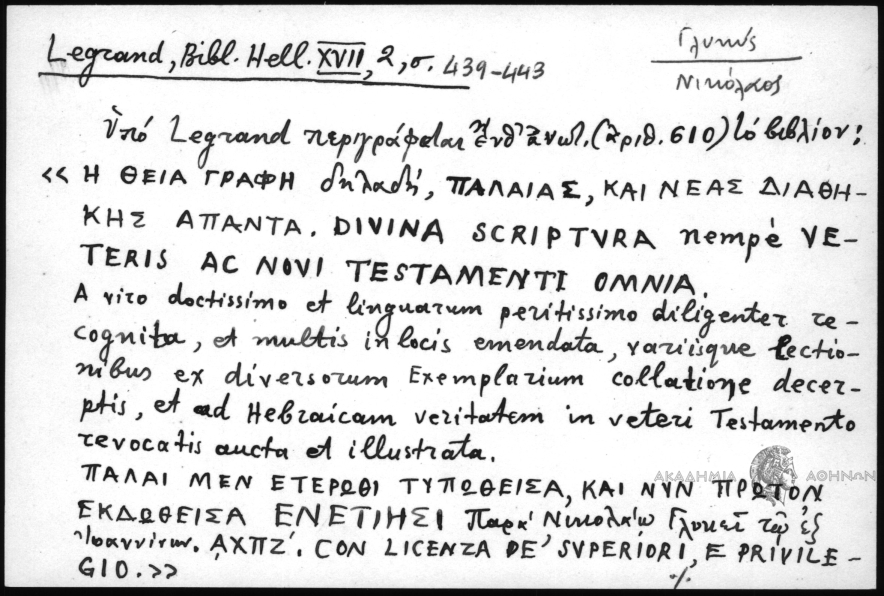 Legrand, Bibl. Hell. XVII, 2, σ. 439-443
Γλυκύς
Νικόλαος
ὑπό Legrand περιγράφεται ἐνθ' ἀνωτ. (ἀριθ. 610) τό βιβλίον:
<< Η ΘΕΙΑ ΓΡΑΦΗ δηλαδή, ΠΑΛΑΙΑΣ, ΚΑΙ ΝΕΑΣ ΔΙΑΘΗ-
ΚΗΣ ΑΠΑΝΤΑ. DIVINA SCRIPTVRA nempè VE-
TERIS AC NOVI TESTAMENTI OMNIA.
A viro doctissimo et linguarum peritissimo diligenter re-
cognita, et multis in locis emendata, variisque lectio-
nibus ex diversorum Exemplarium collatione decer-
ptis, et ad Hebraicam veritatem in veteri Testamento
revocatis aucta et illustrata.
ΑΚΑΔΗΜΙΑ ΑΘΗΝΩΝ
ΠΑΛΑΙ ΜΕΝ ΕΤΕΡΩΘΙ ΤΥΠΩΘΕΙΣΑ, ΚΑΙ ΝΥΝ ΠΡΩΤΟΝ
ΕΚΔΩΘΕΙΣΑ ΕΝΕΤΙΗΣΙ Παρά Νικολάῳ Γλυκεῖ τῷ ἐξ
Ἰωαννίνων. ΑΧΠΖ΄. CON LICENZA DE' SVPERIORI, E PRIVILE-
GIO. >>
./.